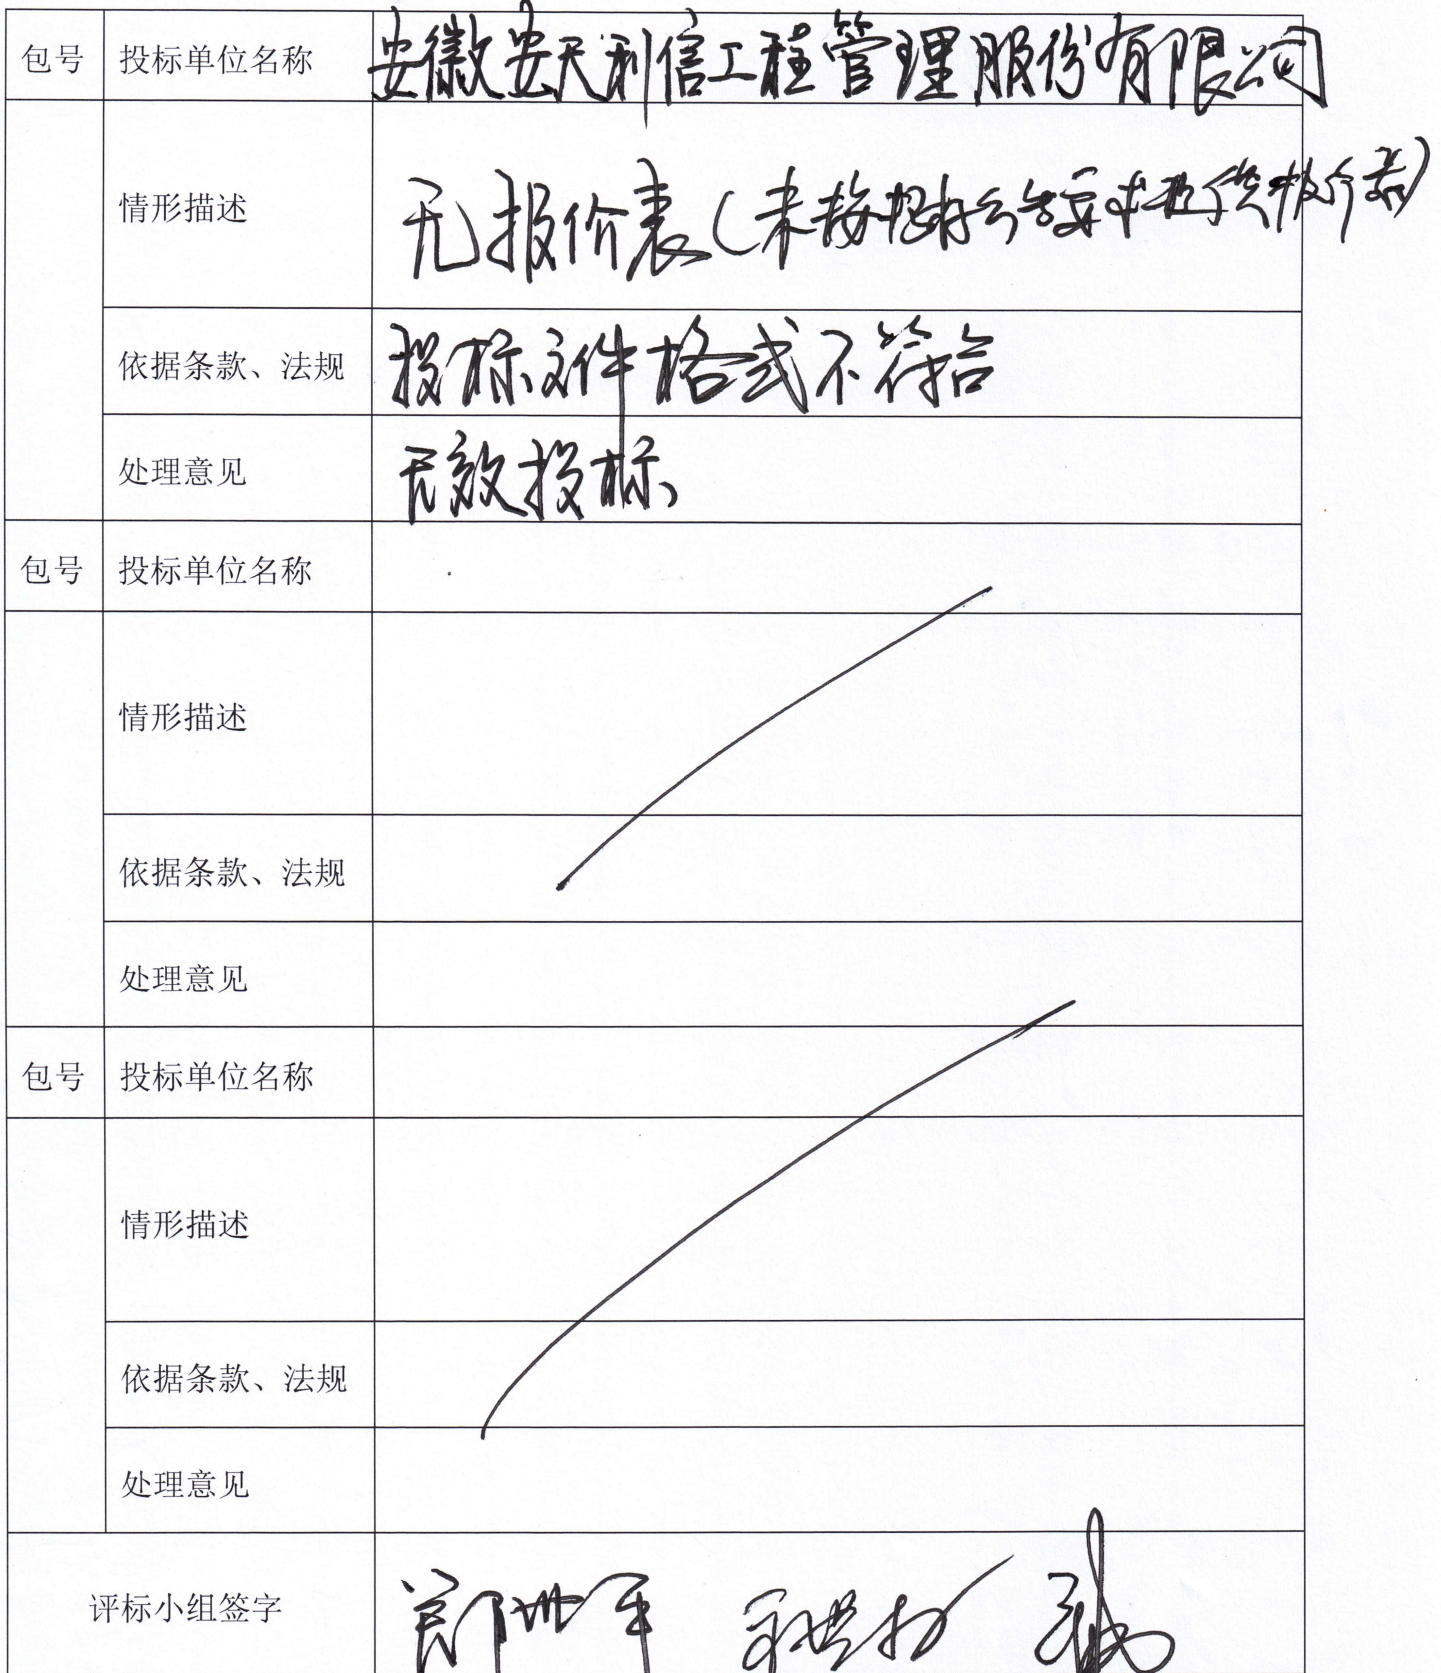 包号 投标单位名称 安徽安天利信工程管理股份有限公司
情形描述 无报价表(未按招标公告要求提供报价表)
依据条款、法规 投标文件格式不符合
处理意见 无效投标
包号 投标单位名称
情形描述
依据条款、法规
处理意见
包号 投标单位名称
情形描述
依据条款、法规
处理意见
评标小组签字